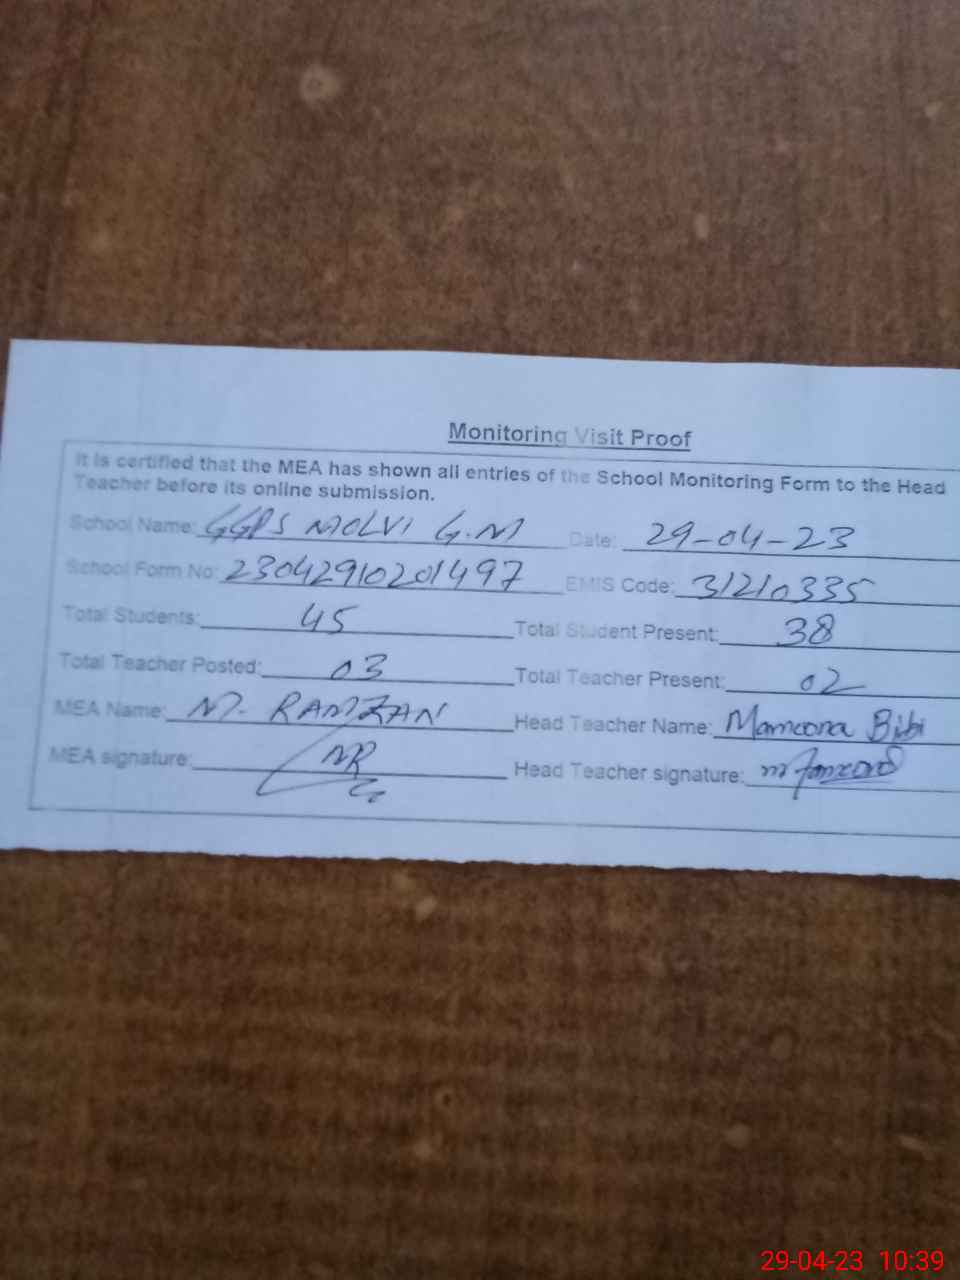 Monitoring Visit Proof
It is certified that the MEA has shown all entries of the School Monitoring Form to the Head
Teacher before its online submission.
School Name: GGPS MOLVI G.M Date: 29-04-23
School Form No: 23042910201497 EMIS Code: 31210335
Total Students: 45 Total Student Present: 38
Total Teacher Posted: 03 Total Teacher Present: 02
MEA Name: M. RAMZAN Head Teacher Name: Mamoona Bibi
MEA signature: MR Head Teacher signature:
29-04-23 10:39